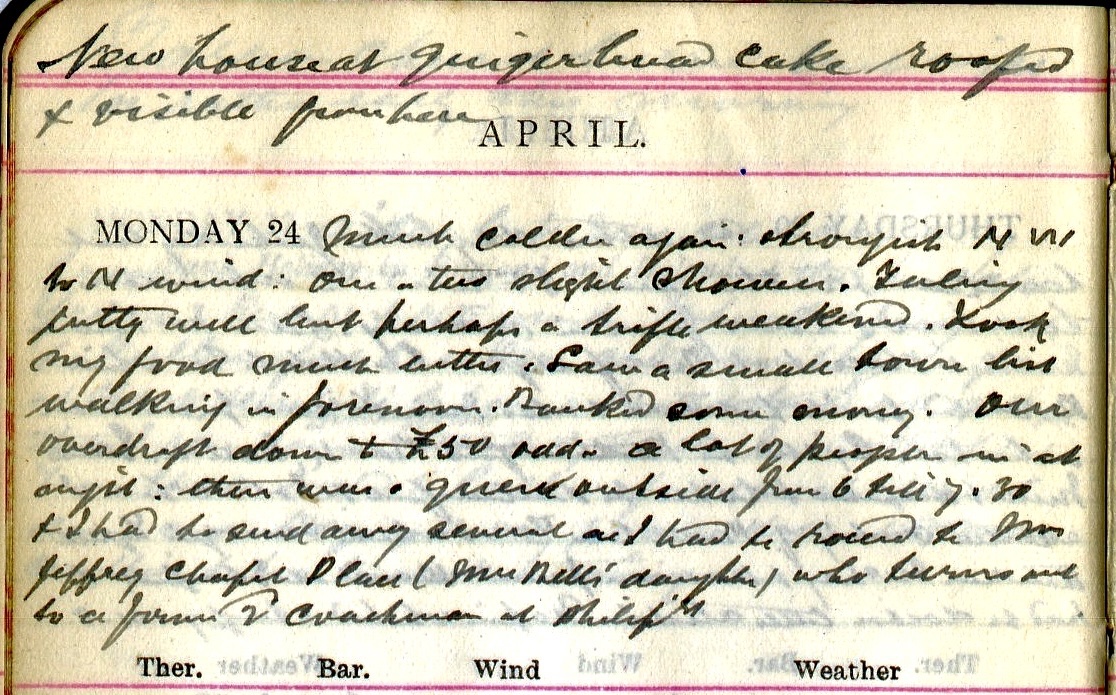 New house at gingerbread cake roofed
& visible from here
APRIL.
MONDAY 24 Much colder again: strongish N W
to N wind: one or two slight showers. Feeling
pretty well but perhaps a trifle weakened. Took
my food much better. Saw a small town list
walking in forenoon. Banked some money. Our
overdraft down to £50 odd. A lot of people in at
night: there was a queue outside from 6 till 7.30
& I had to send away several as I had to round to Mrs
Jeffrey Chapel Place (Mrs Bell's daughter) who turns out
to a former coachman at
Ther. Bar. Wind Weather